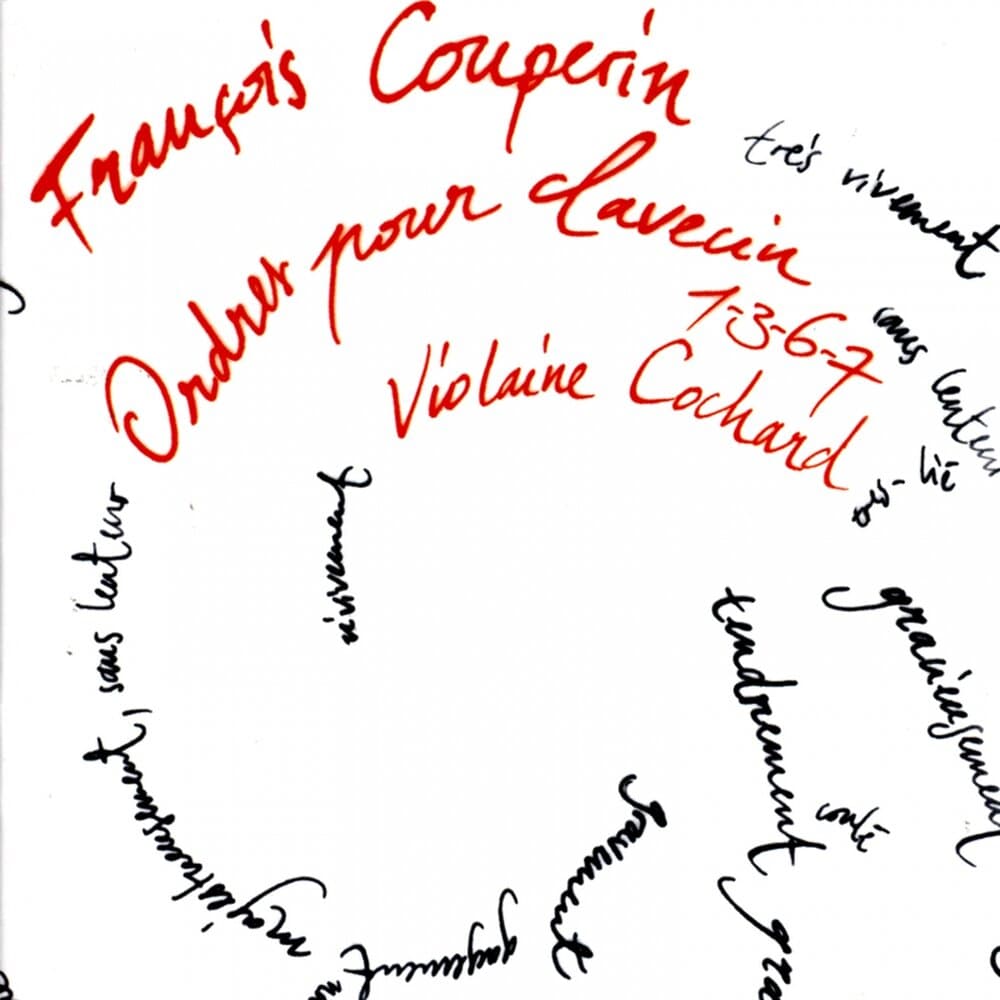 François Couperin
Ordres pour clavecin
1-3-6-7
Violaine Cochard
très vivement
sans lenteur
lié
gracieusement
tendrement
coulé
vivement
sans lenteur
majestueusement,
gayement
gravement